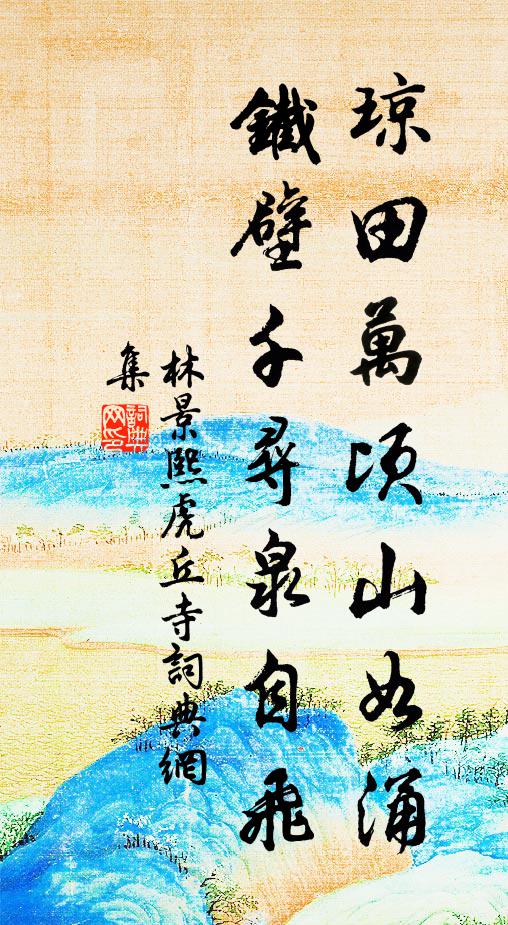 琼田萬頃山如涌
鐵壁千尋泉自飛
林景熙虎丘寺詞典網
集
詞典網印